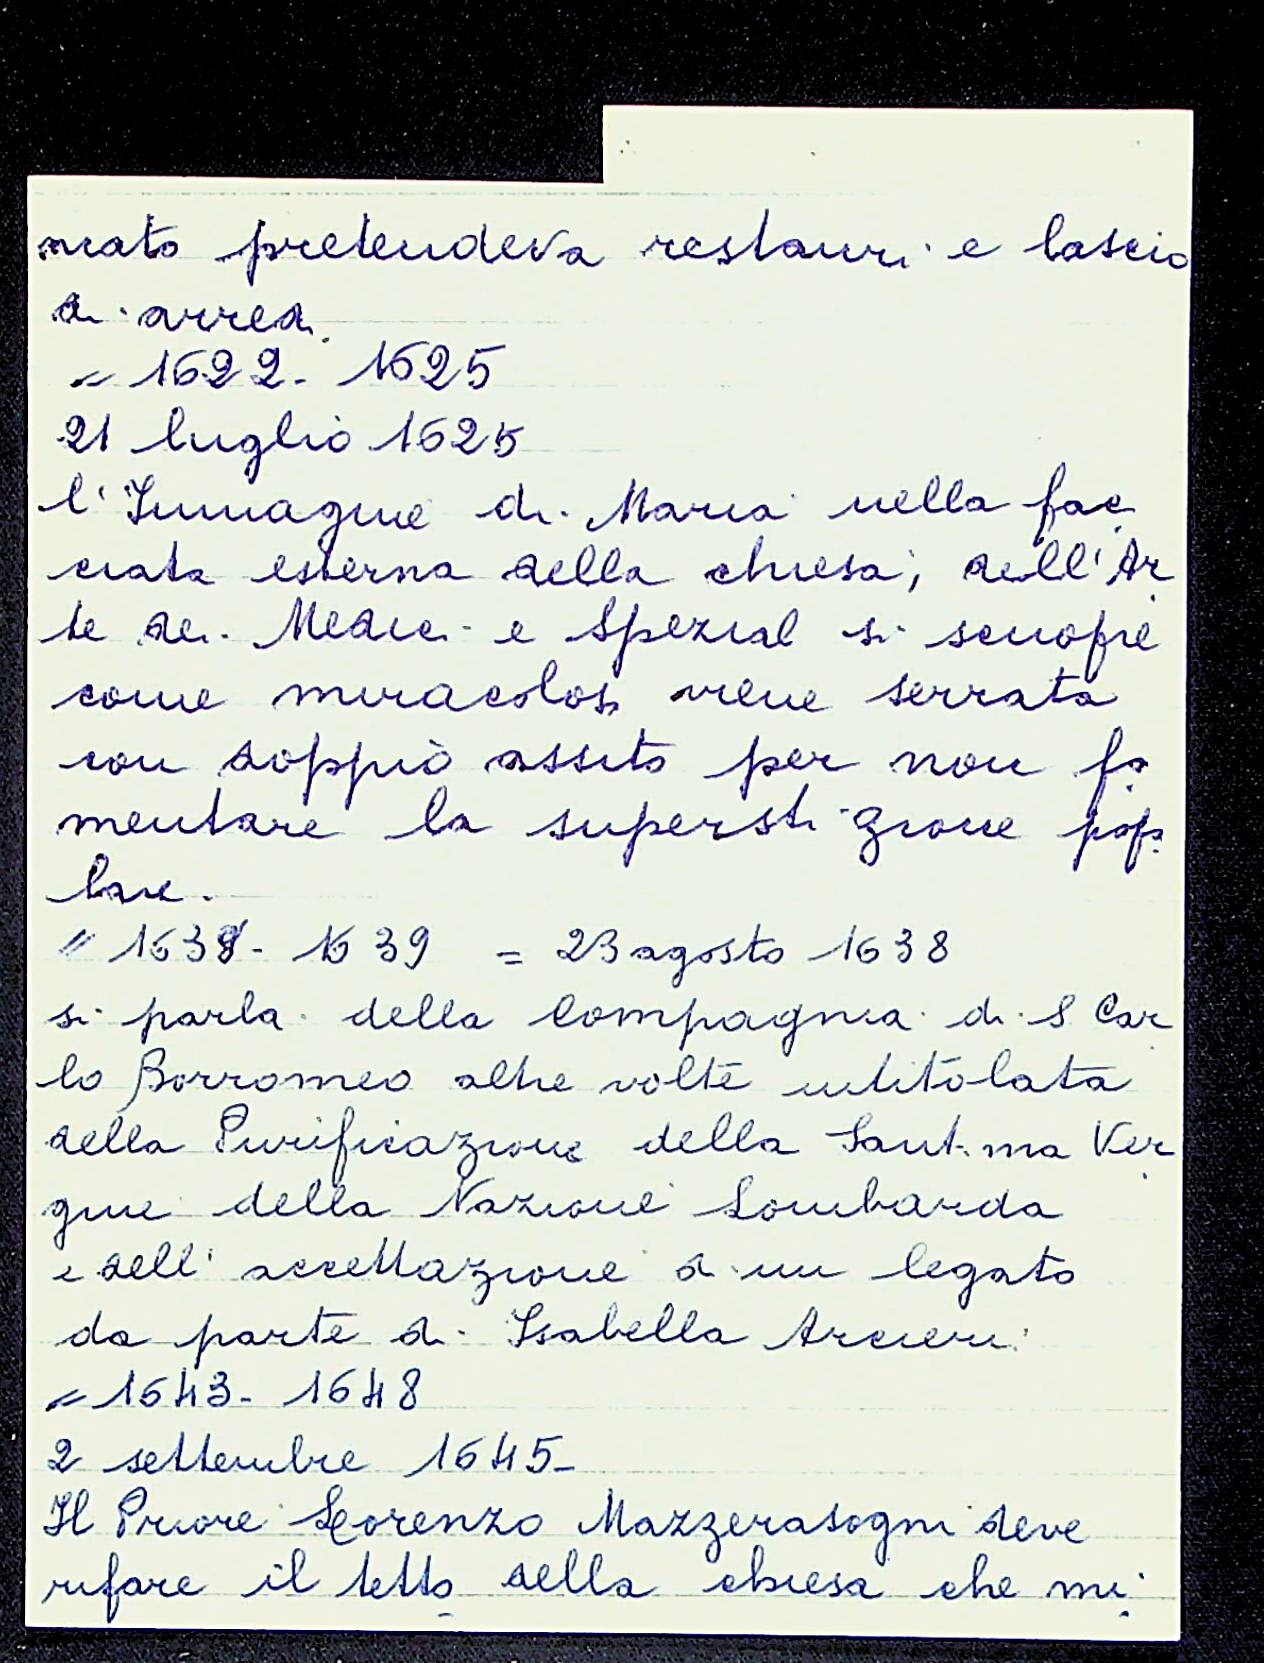 nato pretendeva restauri e lascio
di arredi.
= 1622 - 1625
21 luglio 1625
l'Immagine di Maria nella fac
ciata esterna della chiesa, dell'Ar
te dei Medici e Spezial si scuopre
come miracolosa viene serrata
con doppio assito per non fo
mentare la superstizione popo
lare.
" 1638 - 1639 = 23 agosto 1638
si parla della Compagnia di S Car
lo Borromeo altre volte intitolata
della Purificazione della Sant.ma Ver
gine della Nazione Lombarda
e dell'accettazione di un legato
da parte di Isabella Arcieri
= 1643 - 1648
2 settembre 1645 -
Il Priore Lorenzo Mazzerasogni deve
rifare il tetto della chiesa che mi